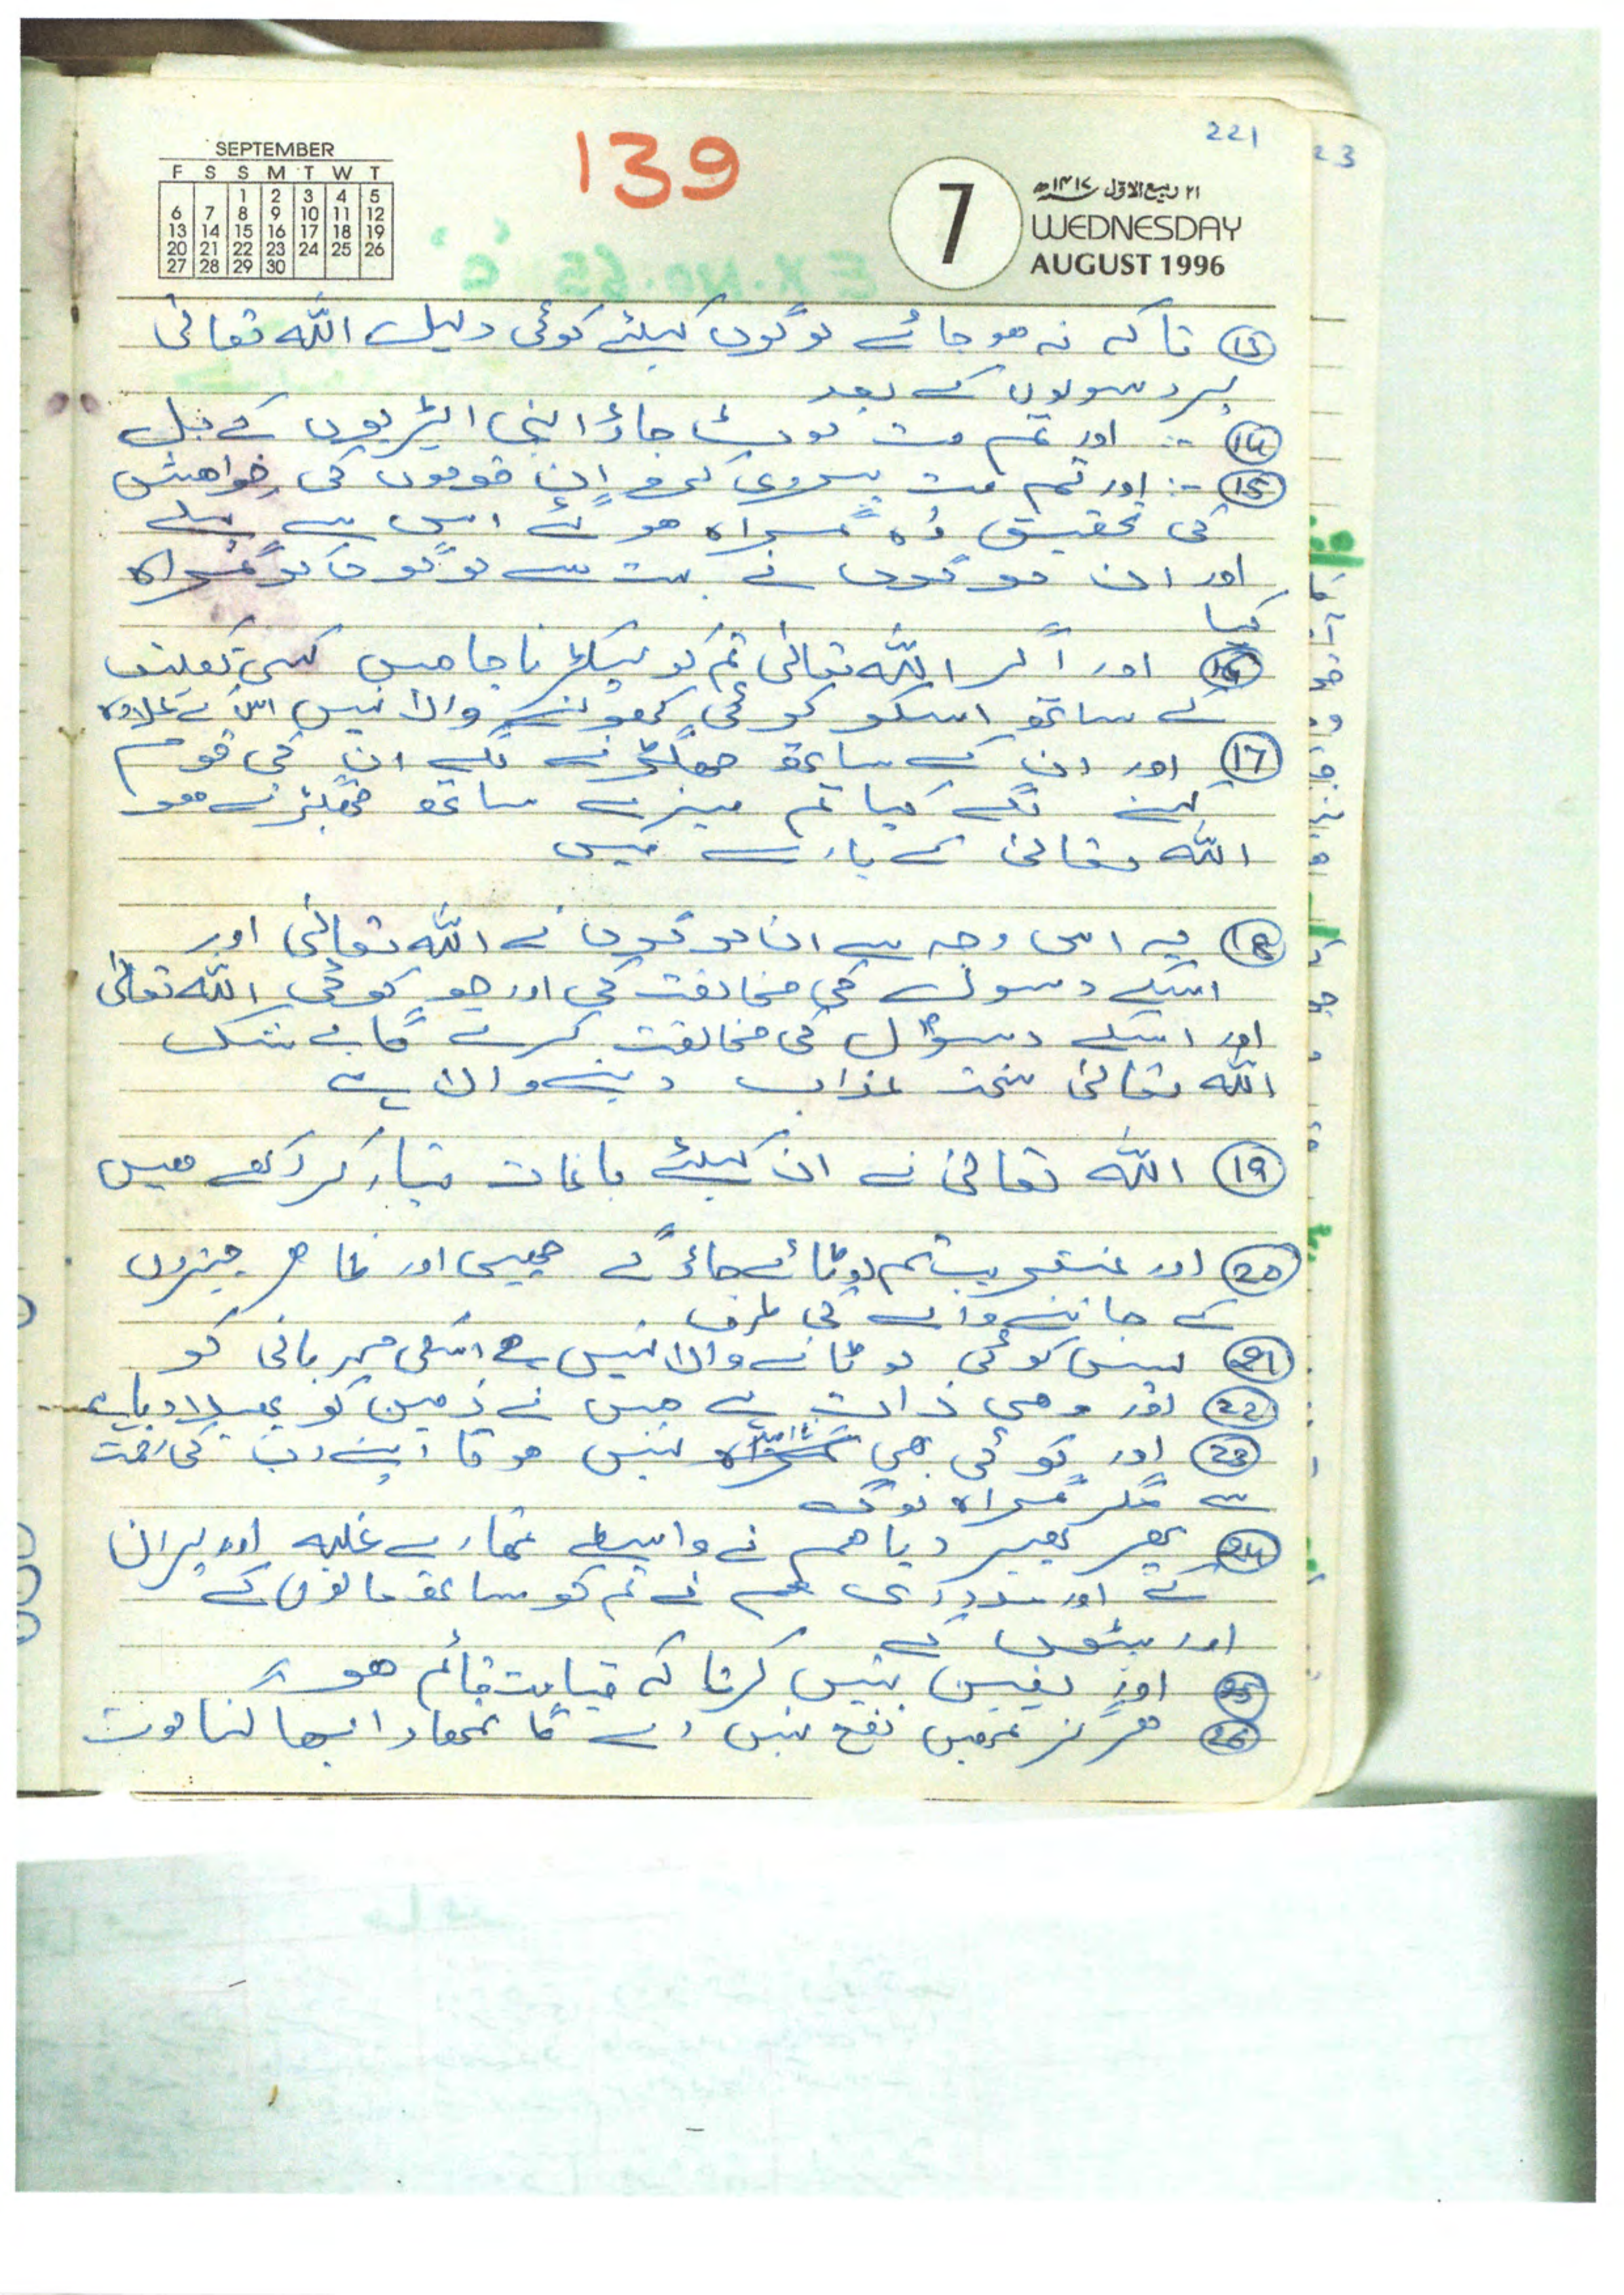 221
23
139
SEPTEMBER
F S S M T W T
1 2 3 4 5
6 7 8 9 10 11 12
13 14 15 16 17 18 19
20 21 22 23 24 25 26
27 28 29 30
7
۲۱ ربیع الاول ۱۴۱۷ھ
WEDNESDAY
AUGUST 1996
EX. No. 65
13 تاکہ نہ ہو جائے لوگوں کیلئے کوئی دلیل اللہ تعالیٰ
پر رسولوں کے بعد
14 :- اور تم مت لوٹ جاؤ اپنی ایڑیوں کے بل
15 :- اور تم مت پیروی کرو ان قوموں کی خواہش
کی تحقیق وہ گمراہ ہوئے اس سے پہلے
اور ان لوگوں نے بہت سے لوگوں کو گمراہ
کیا
16 اور اگر اللہ تعالیٰ تم کو پکڑنا چاہیں کسی تکلیف
کے ساتھ اسکو کوئی کھولنے والا نہیں اس کے علاوہ
17 اور ان کے ساتھ جھگڑنے لگے ان کی قوم
کہنے لگے کیا تم میرے ساتھ جھگڑتے ہو
اللہ تعالیٰ کے بارے میں
18 یہ اس وجہ سے ان لوگوں نے اللہ تعالیٰ اور
اسکے رسول کی مخالفت کی اور جو کوئی اللہ تعالیٰ
اور اسکے رسول کی مخالفت کرے گا بے شک
اللہ تعالیٰ سخت عذاب دینے والا ہے
19 اللہ تعالیٰ نے ان کیلئے باغات تیار کر رکھے ہیں
20 اور عنقریب تم لوٹائے جاؤ گے چھپی اور ظاہر چیزوں
کے جاننے والے کی طرف
21 پس کوئی لوٹانے والا نہیں ہے اسکی مہربانی کو
22 اور وہی ذات ہے جس نے زمین کو پھیلا دیا ہے
23 اور کوئی بھی نا امید نہیں ہوگا اپنے رب کی رحمت
سے مگر گمراہ لوگ
24 پھر پھیر دیا ہم نے واسطے تمہارے غلبہ اوپر ان
کے اور مدد کی ہم نے تم کو ساتھ مالوں کے
اور بیٹوں کے
25 اور یقین نہیں کرتا کہ قیامت قائم ہو
26 ہرگز تمہیں نفع نہیں دے گا تمہارا بھاگنا موت